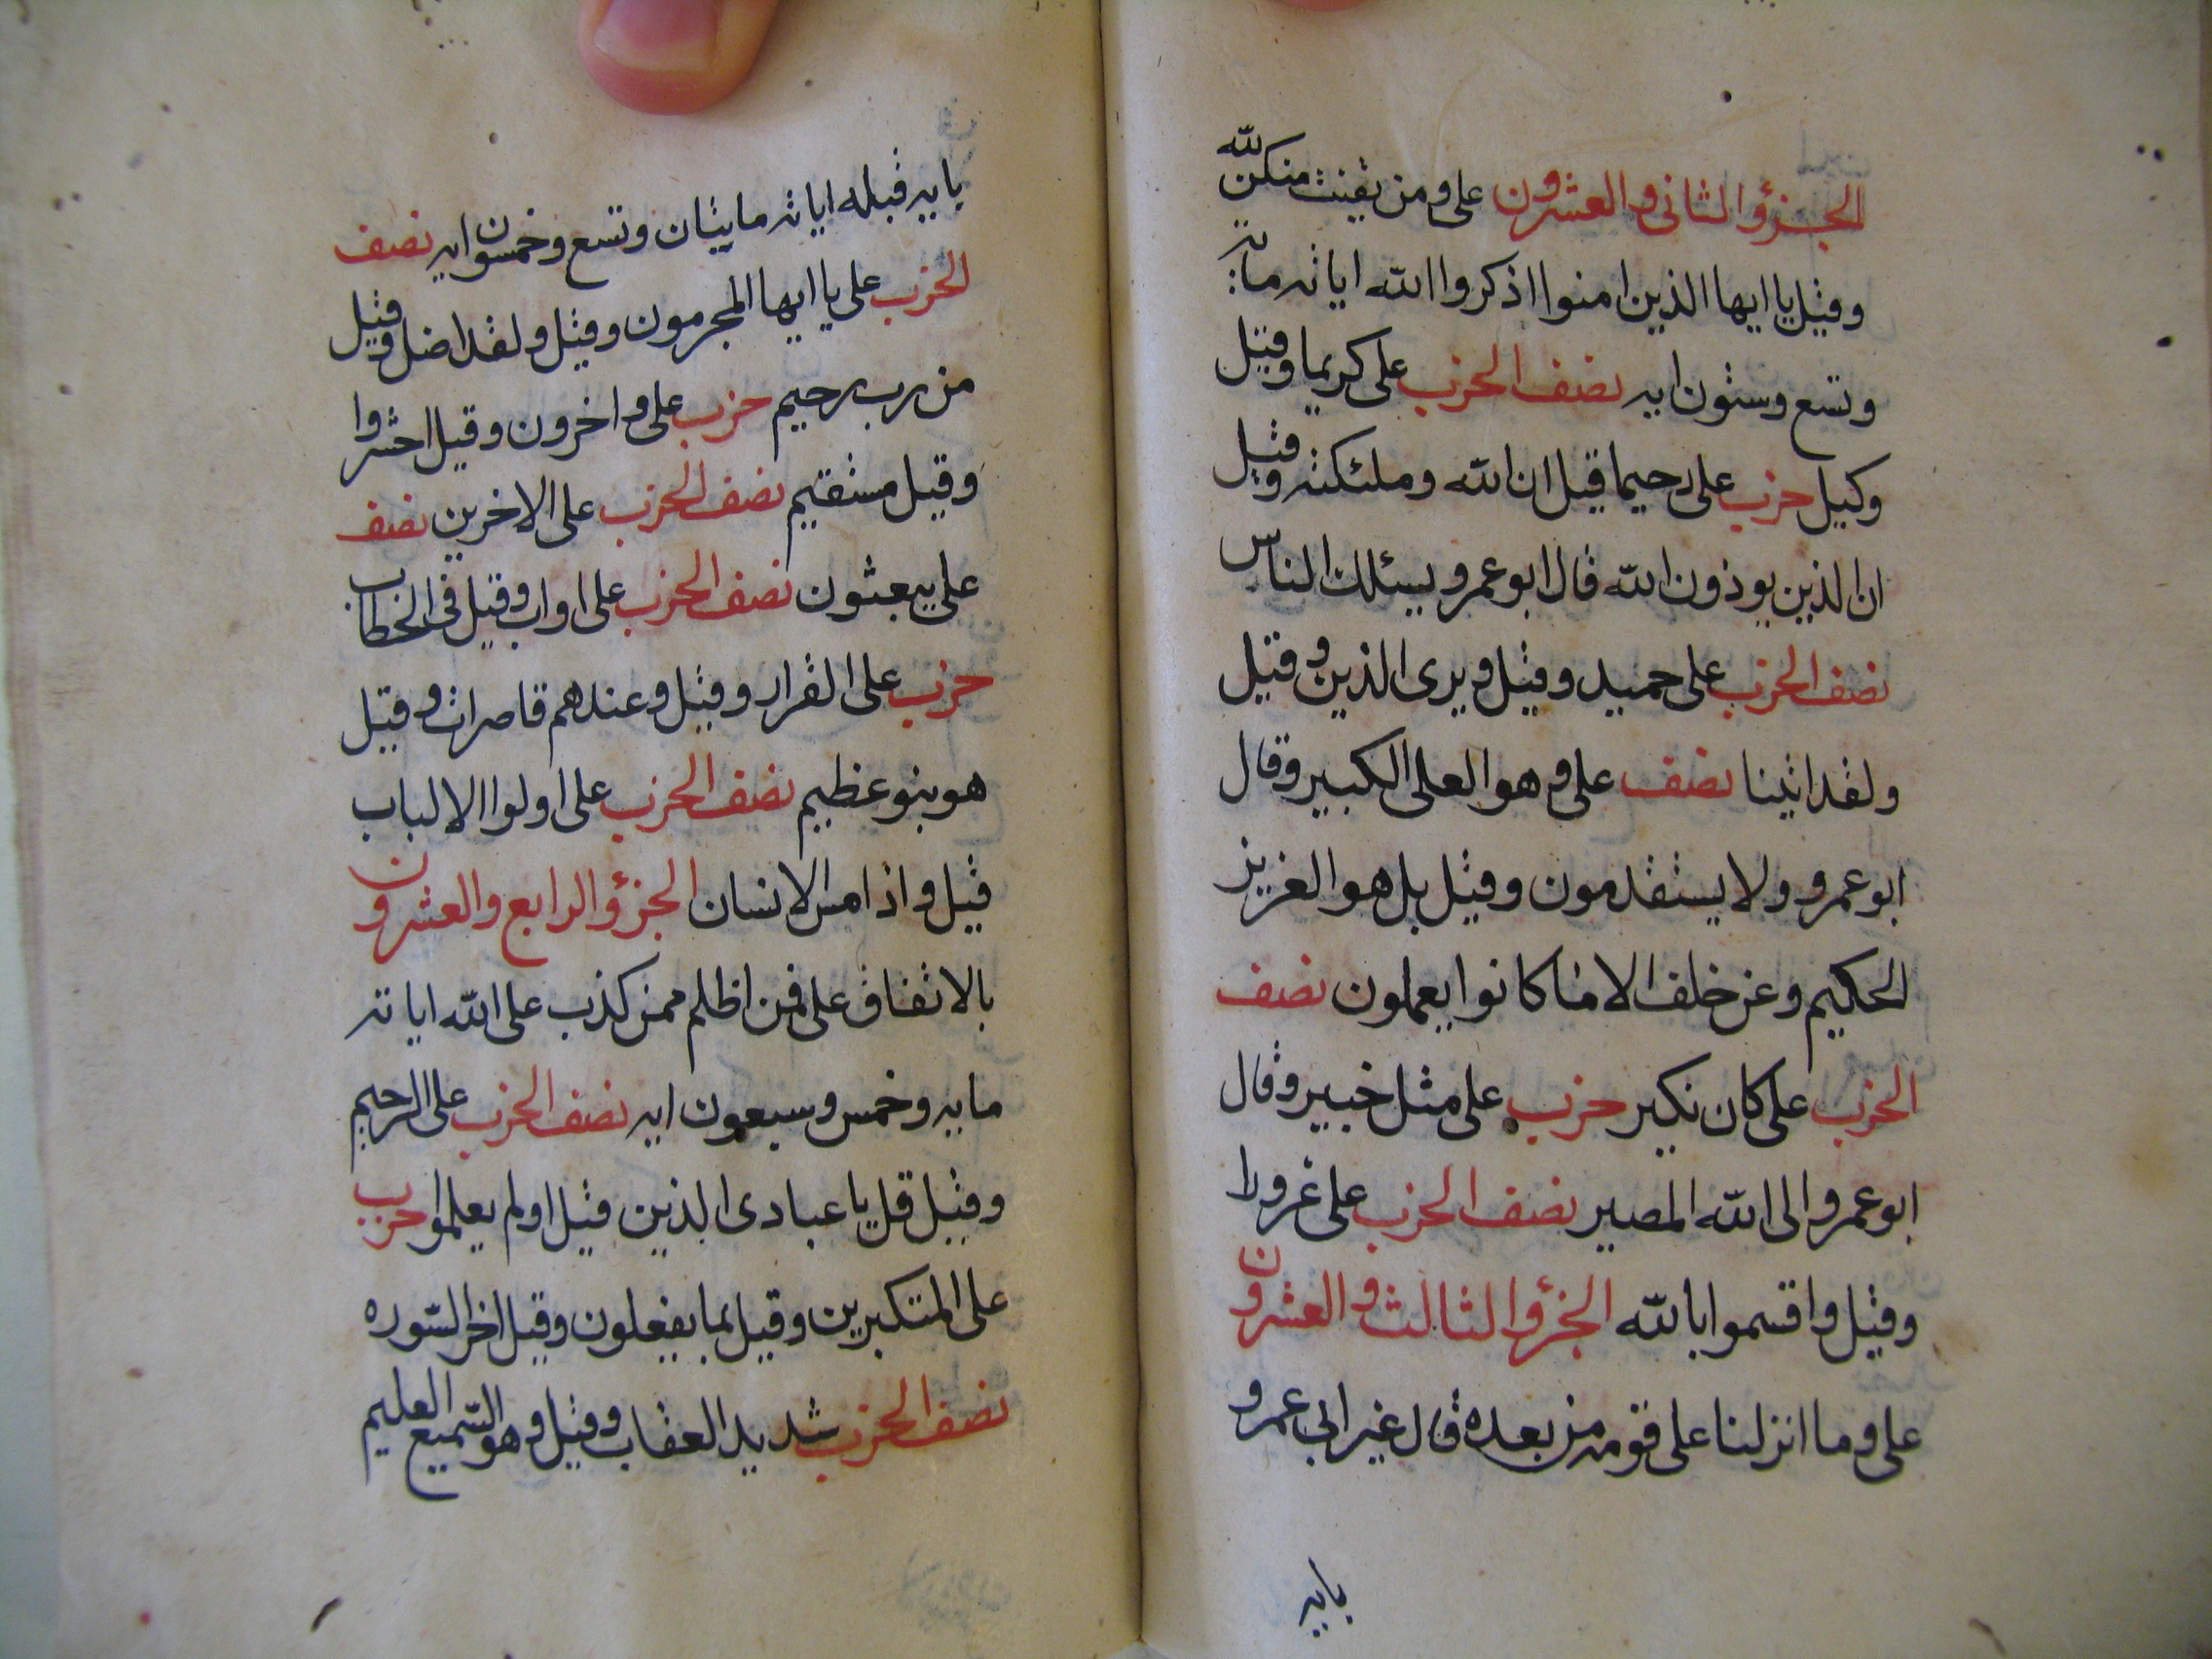 الجزؤ الثانى والعشرون على ومن يقنت منكن لله
وقيل يا ايها الذين امنوا اذكروا الله اياته ماية
وتسع وستون ايه نصف الحزب على كريما وقيل
وكيل حزب على رحيما قيل ان الله وملئكته وقيل
ان الذين يوذون الله قال ابو عمرو يسئلك الناس
نصف الحزب على حميد وقيل ويرى الذين وقيل
ولقد اتينا نصف على وهو العلى الكبير وقال
ابو عمرو ولا يستقدمون وقيل بل هو العزيز
الحكيم وعن خلف الا ما كانوا يعملون نصف
الحزب على كان نكير حزب على مثل خبير وقال
ابو عمرو الى الله المصير نصف الحزب على غرورا
وقيل واقسموا بالله الجزؤ الثالث والعشرون
على وما انزلنا على قومه من بعده قال غير ابى عمرو
يايه
يايه قبله اياته مايتان وتسع وخمسون ايه نصف
الحزب على يا ايها المجرمون وقيل ولقد اضل وقيل
من رب رحيم حزب على واخرون وقيل احشروا
وقيل مستقيم نصف الحزب على الاخرين نصف
على يبعثون نصف الحزب على اواب وقيل فى الخطاب
حزب على القرار وقيل وعندهم قاصرات وقيل
هو نبو عظيم نصف الحزب على اولوا الالباب
قيل واذا مس الانسان الجزؤ الرابع والعشرون
بالاتفاق على فمن اظلم ممن كذب على الله اياته
مايه وخمس وسبعون ايه نصف الحزب على الرحيم
وقيل قل يا عبادى الذين قيل اولم يعلموا حزب
على المتكبرين وقيل بما يفعلون وقيل اخر السوره
نصف الحزب شديد العقاب وقيل وهو السميع العليم